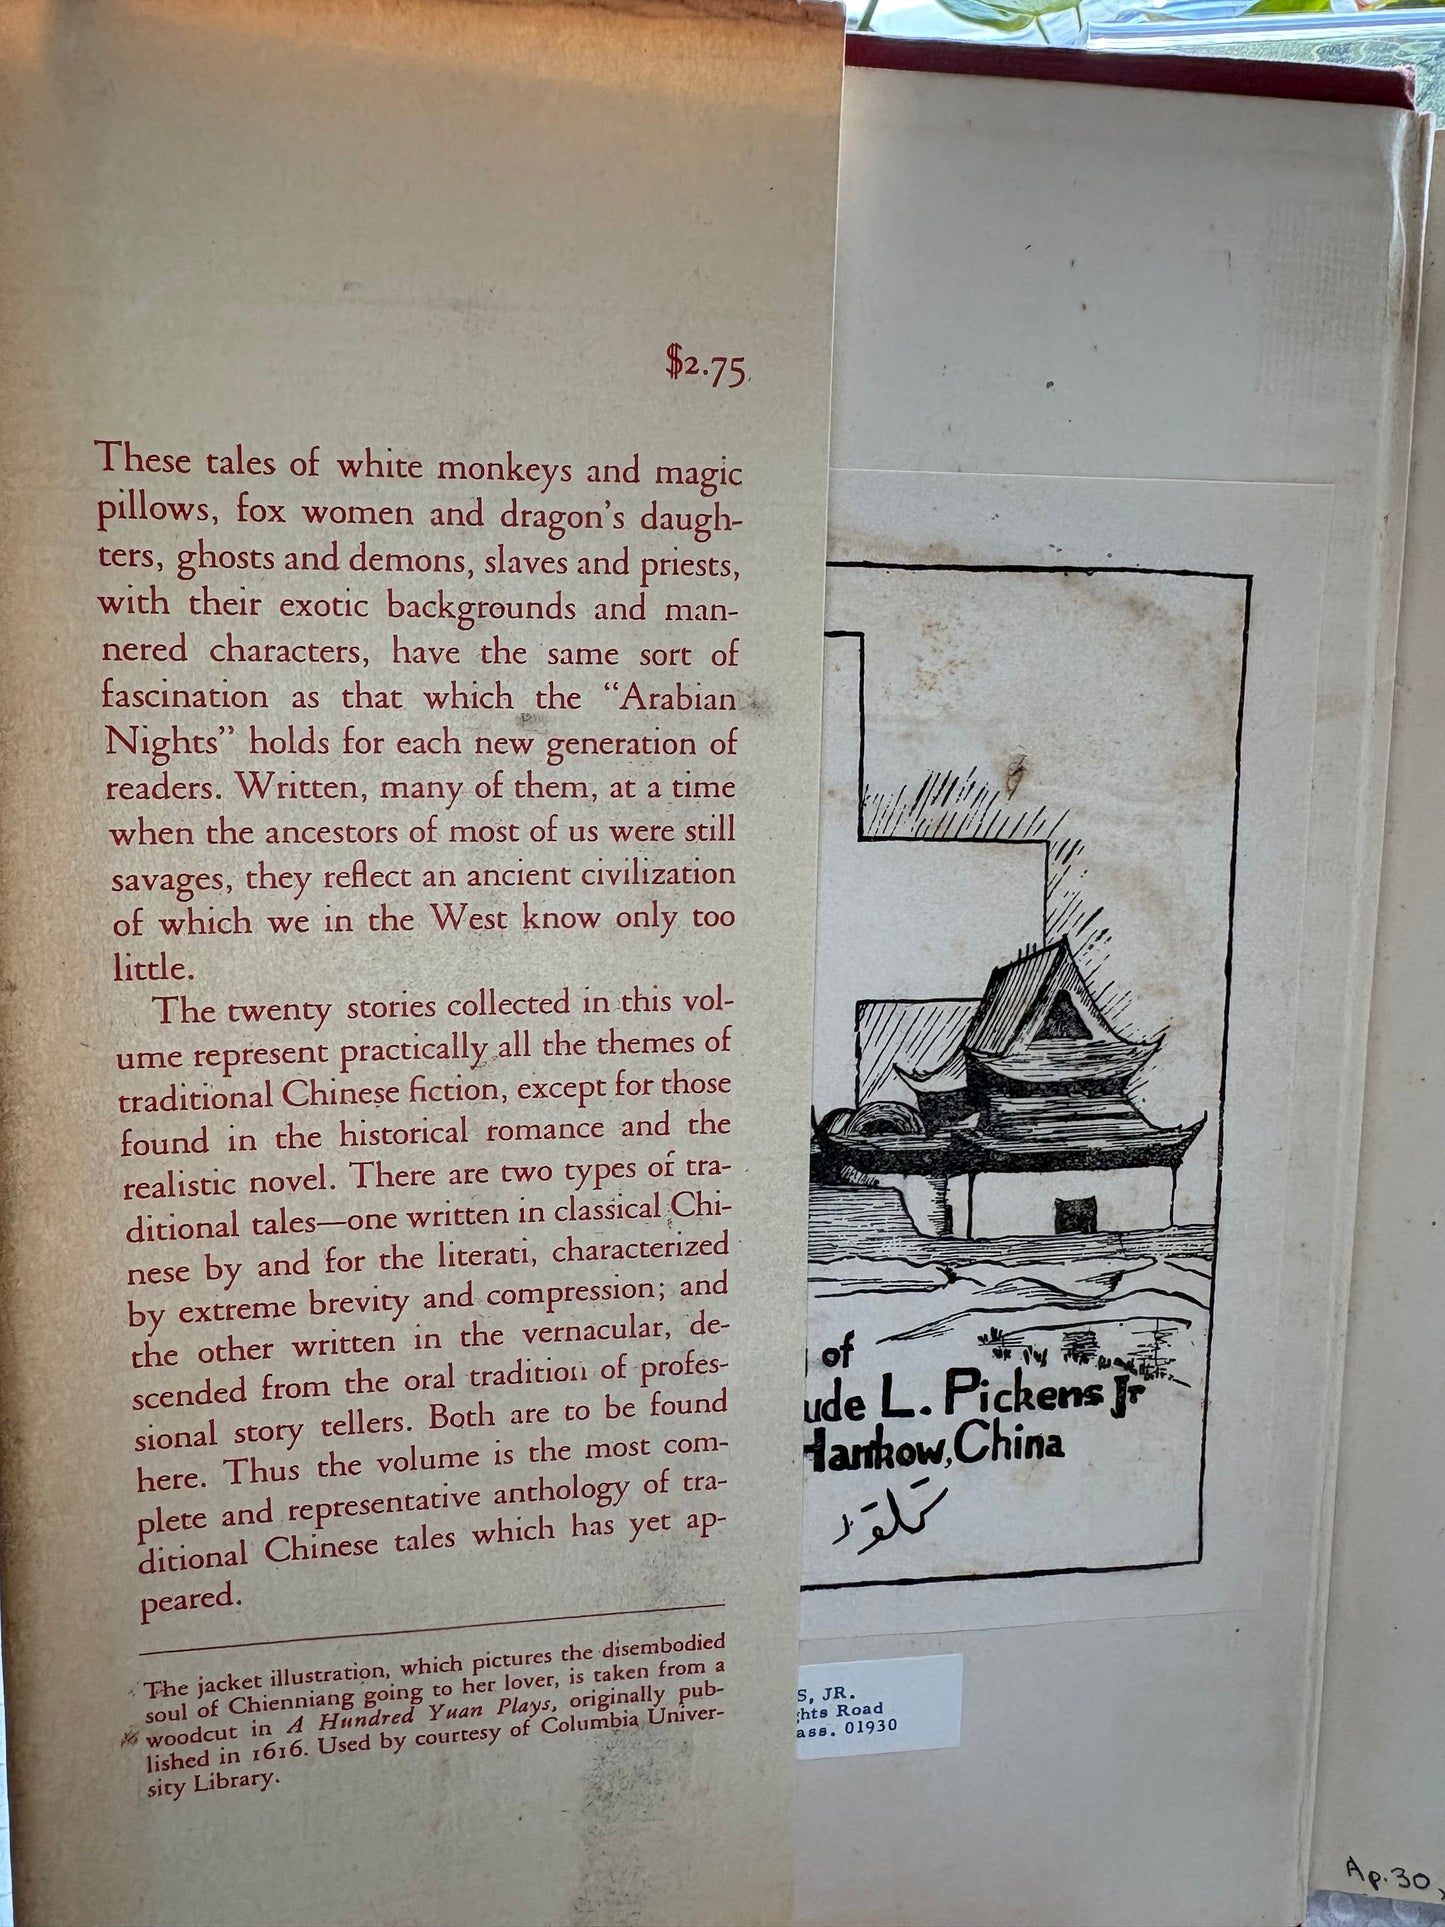 $2.75
These tales of white monkeys and magic
pillows, fox women and dragon's daugh-
ters, ghosts and demons, slaves and priests,
with their exotic backgrounds and man-
nered characters, have the same sort of
fascination as that which the “Arabian
Nights” holds for each new generation of
readers. Written, many of them, at a time
when the ancestors of most of us were still
savages, they reflect an ancient civilization
of which we in the West know only too
little.
The twenty stories collected in this vol-
ume represent practically all the themes of
traditional Chinese fiction, except for those
found in the historical romance and the
realistic novel. There are two types of tra-
ditional tales—one written in classical Chi-
nese by and for the literati, characterized
by extreme brevity and compression; and
the other written in the vernacular, de-
scended from the oral tradition of profes-
sional story tellers. Both are to be found
here. Thus the volume is the most com-
plete and representative anthology of tra-
ditional Chinese tales which has yet ap-
peared.
The jacket illustration, which pictures the disembodied
soul of Chienniang going to her lover, is taken from a
woodcut in A Hundred Yuan Plays, originally pub-
lished in 1616. Used by courtesy of Columbia Univer-
sity Library.
of
ude L. Pickens Jr
Hankow, China
S, JR.
ghts Road
ass. 01930
Ap. 30,